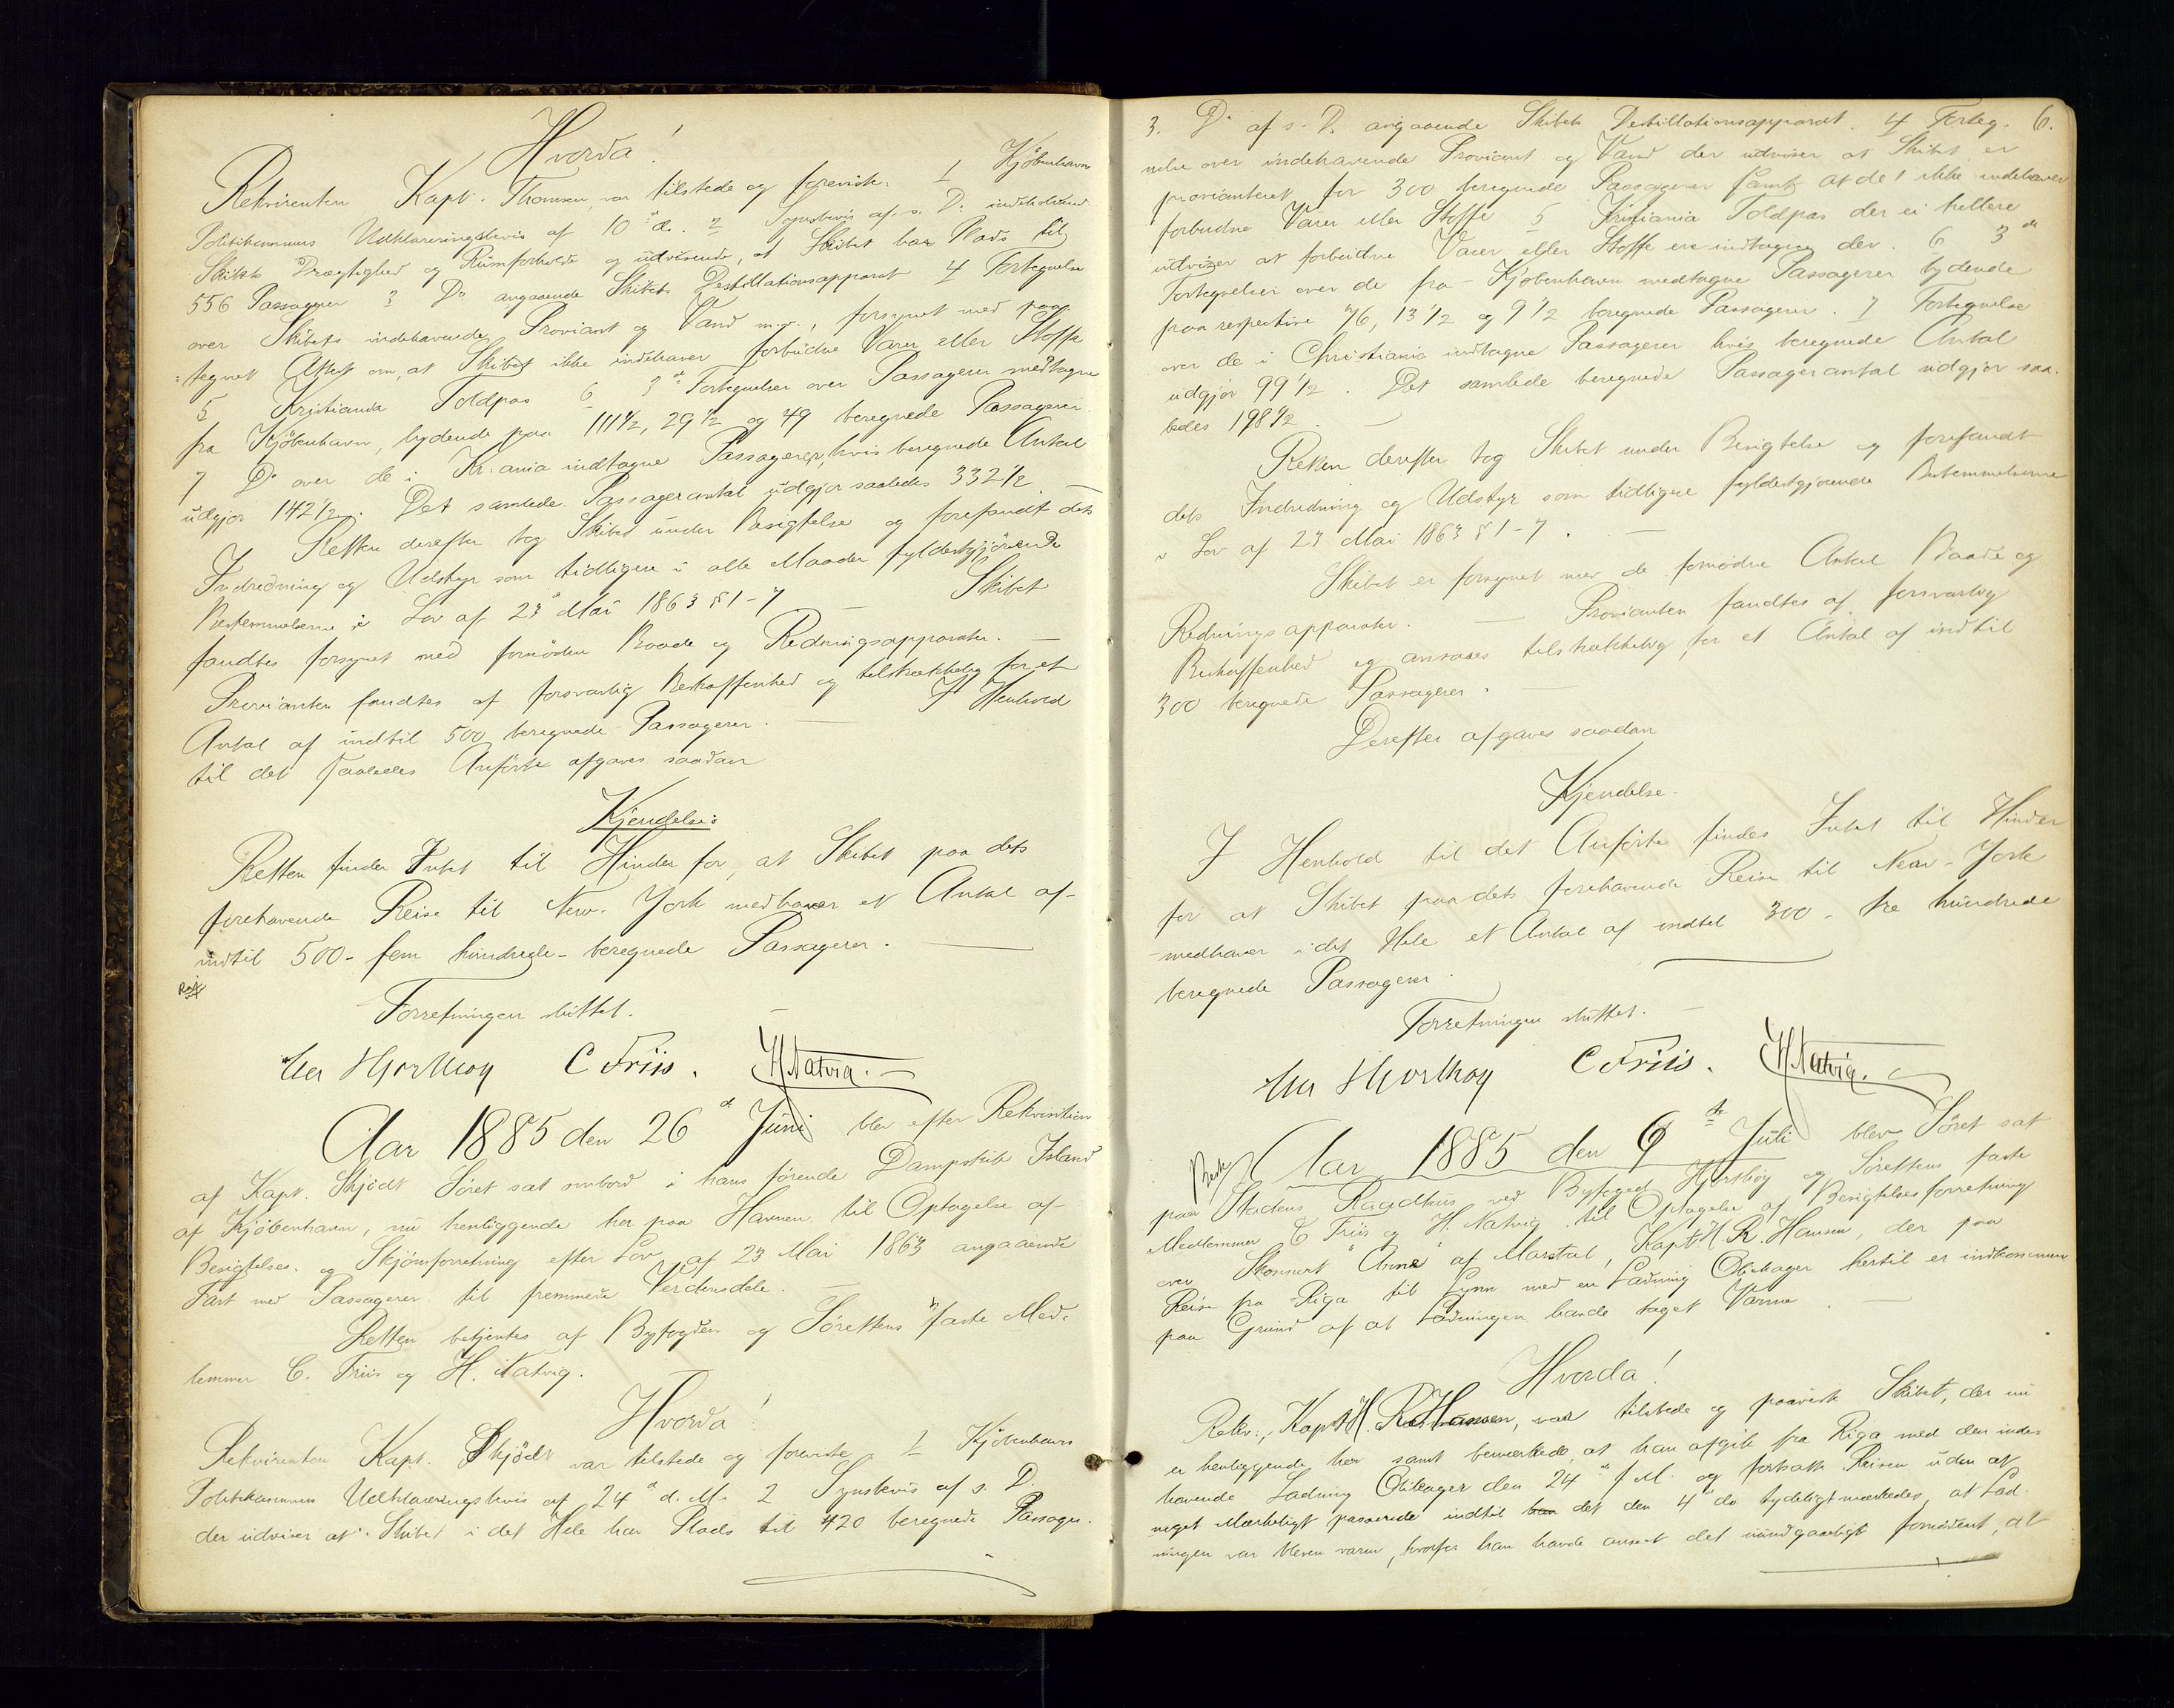 Hvorda!
Rekvirenten Kapt. Thomsen var tilstede og foreviste: 1 Kjøbenhavns
Politikammers Udklareringsbevis af 10de ds. 2 Synsbevis af s. D: indeholdende
Skibets Drægtighed og Rumforholde og udvisende, at Skibet har Plads til
556 Passagerer 3 Do angaaende Skibets Destillationsapparat 4 Fortegnelse
over Skibets indehavende Proviant og Vand m.v., forsynet med paa-
tegnet Attest om, at Skibet ikke indehaver forbudne Varer eller Stoffe
5 Kristiania Toldpas 6 3de Fortegnelser over Passagerer medtagne
fra Kjöbenhavn, lydende paa 111 1/2, 29 1/2 og 49 beregnede Passagerer.
7 Do over de i Kr:ania indtagne Passagerer, hvis beregnede Antal
udgjør 142 1/2. Det samlede Passagerantal udgjør saaledes 332 1/2. —
Retten derefter tog Skibet under Besigtelse og forefandt dets
Indredning og Udstyr som tidligere i alle Maader fyldestgjörende
Bestemmelserne i Lov af 23de Mai 1863 § 1-7 — Skibet
fandtes forsynet med fornødne Baade og Redningsapparater. —
Provianten fandtes af forsvarlig Beskaffenhed og tilstrækkelig for et
Antal af indtil 500 beregnede Passagerer. — I Henhold
til det saaledes Anførte afgaves saadan
Kjendelse:
Retten finder Intet til Hinder for, at Skibet paa dets
forehavende Reise til New-York medhaver et Antal af
indtil 500 - fem hundrede - beregnede Passagerer. —
Forretningen sluttet. —
Hjorthoy C Friis. H Natvig. —
Aar 1885 den 26de Juni blev efter Rekvisition
af Kapt. Skjödt Söret sat ombord i hans førende Dampskib Island
af Kjöbenhavn, nu henliggende her paa Havnen til Optagelse af
Besigtelses- og Skjönsforretning efter Lov af 23 Mai 1863 angaaende
Fart med Passagerer til fremmede Verdensdele. —
Retten betjentes af Byfogden og Sörettens faste Med-
lemmer C. Friis og H. Natvig.
Hvorda!
Rekvirenten Kapt. Skjödt var tilstede og foreviste 1 Kjøbenhavns
Politikammers Udklareringsbevis af 24de d. M. 2 Synsbevis af s. D.
der udviser at Skibet i det Hele har Plads til 420 beregnede Passager.
6.
3. Do af s. D. angaaende Skibets Destillationsapparat. 4 Forteg-
nelse over indehavende Proviant og Vand der udviser at Skibet er
provianteret for 300 beregnede Passagerer samt at det ikke indehaver
forbudne Varer eller Stoffe 5 Kristiania Toldpas der ei hellere
udviser at forbudne Varer eller Stoffe ere indtagne der. 6 3de
Fortegnelser over de fra Kjøbenhavn medtagne Passagerer lydende
paa respective 76, 13 1/2 og 9 1/2 beregnede Passagerer. 7 Fortegnelse
over de i Christiania indtagne Passagerer hvis beregnede Antal
udgjör 99 1/2. Det samlede beregnede Passagerantal udgjør saa-
ledes 198 1/2. —
Retten derefter tog Skibet under Besigtelse og forefandt
dets Indredning og Udstyr som tidligere fyldestgjørende Bestemmelserne
i Lov af 23 Mai 1863 § 1-7. —
Skibet er forsynet med de fornødne Antal Baade og
Redningsapparater. — Provianten fandtes af forsvarlig
Beskaffenhed og ansaaes tilstrækkelig for et Antal af indtil
300 beregnede Passagerer. —
Derefter afgaves saadan
Kjendelse.
I Henhold til det Anførte findes Intet til Hinder
for at Skibet paa dets forehavende Reise til New-York
medhaver i det Hele et Antal af indtil 300 - tre hundrede
beregnede Passagerer.
Forretningen sluttet. —
Hjorthoy C Friis. H Natvig.
Aar 1885 den 9de Juli blev Söret sat
paa Stadens Raadhus ved Byfoged Hjorthöy og Sörettens faste
Medlemmer C Friis og H. Natvig til Optagelse af Besigtelsesforretning
over Skonnert "Anna" af Marstal, Kapt. H. R. Hansen, der paa
Reise fra Riga til Lynn med en Ladning Oliekager hertil er indkommen
paa Grund af at Ladningen havde taget Varme. —
Hvorda!
Rekv., Kapt. H. R. Hansen, var tilstede og paaviste Skibet, der nu
er henliggende her samt bemærkede, at han afgik fra Riga med den inde-
havende Ladning Oliekager den 24de f. M. og fortsatte Reisen uden at
noget Mærkeligt passerede indtil det den 4de ds tydeligt mærkedes, at Lad-
ningen var bleven varm, hvorfor han havde anseet det uundgaaeligt fornødent, at